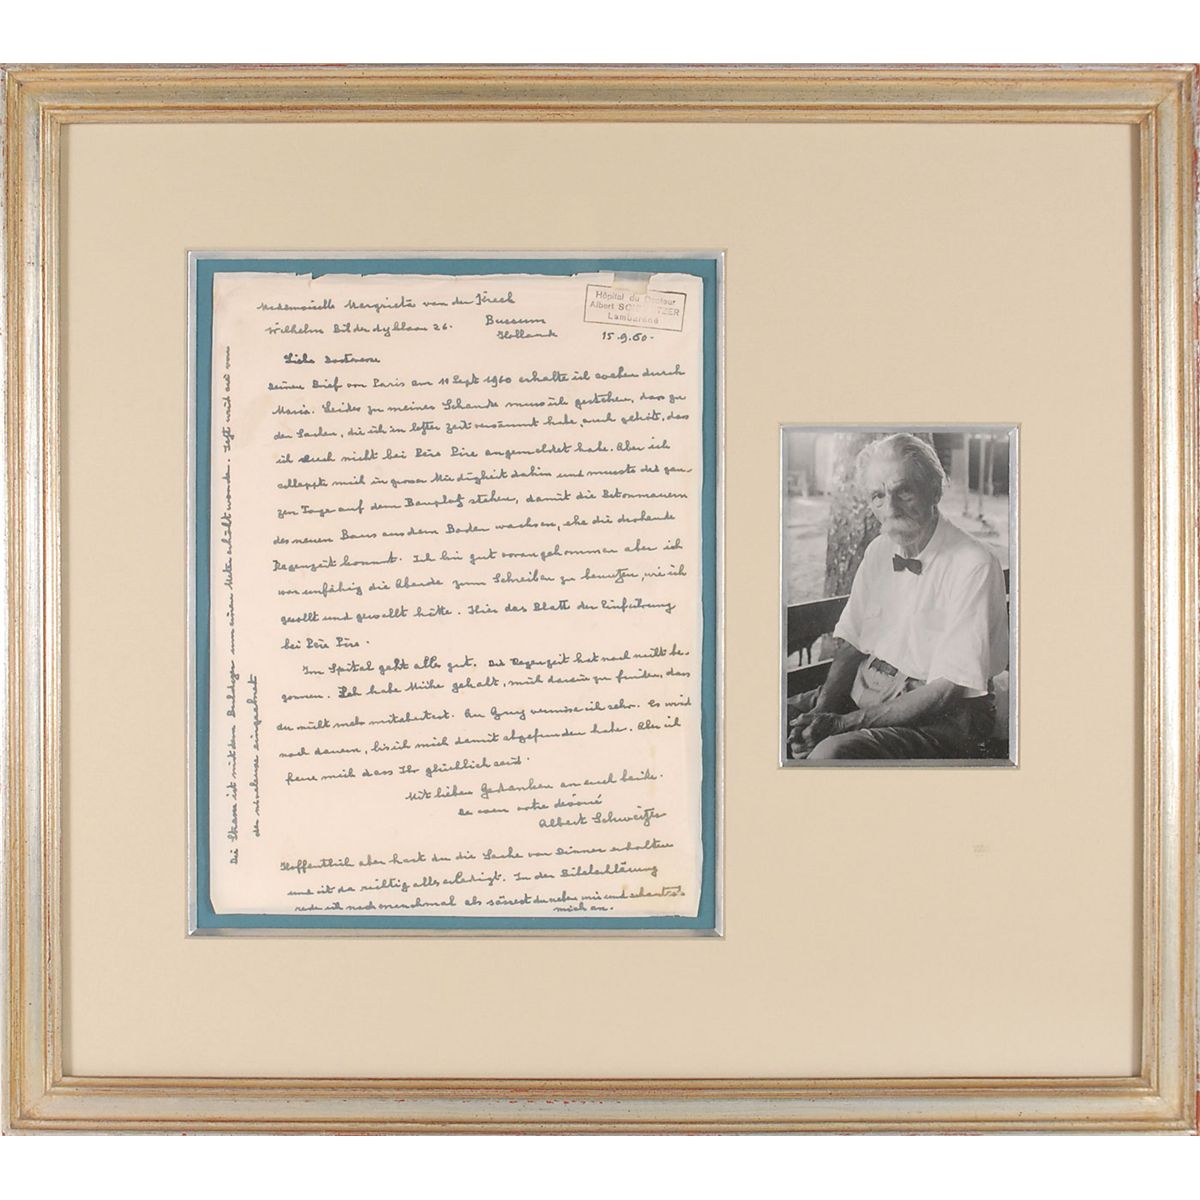 Mademoiselle Margrieta van der
Wilhelm Bilderdyklaan 26. Bussum
Holland
Hôpital du Docteur
Albert SCHWEITZER
Lambaréné
15.9.60.
Liebe
Deinen Brief von Paris am 11 Sept 1960 erhalte ich soeben durch
Maria. Leider zu meiner Schande muss ich gestehen, dass zu
den Sachen, die ich in letzter Zeit versäumt habe auch gehört, dass
ich Euch nicht bei Père Pire angemeldet habe. Aber ich
in grosser Müdigkeit dahin und musste den gan-
zen Tage auf dem Bauplatz stehen, damit die Betonmauern
des neuen Baus aus dem Boden wachsen, ehe die drohende
Regenzeit kommt. Ich bin gut voran gekommen aber ich
war unfähig die Abende zum Schreiben zu benutzen, wie ich
gesollt und gewollt hätte. Hier das Blatt der Einführung
bei Père Pire.
Im Spital geht alles gut. Die Regenzeit hat noch nicht be-
gonnen. Ich habe Mühe gehabt, mich darein zu finden, dass
du nicht mehr mitarbeitest. An Guy vermisse ich sehr. Es wird
noch dauern, bis ich mich damit abgefunden habe. Aber ich
freue mich dass Ihr glücklich seid.
Mit lieben Gedanken an euch beide.
De coeur votre dévoué
Albert Schweitzer
Hoffentlich aber hast du die Sache von erhalten
und ist da richtig alles erledigt. In der
rede ich noch manchmal als sässest du neben mir und schautest
mich an.
Die Strasse ist mit dem Bulldozer um einen Meter erhöht worden. Jetzt wird sie von
der eingeebnet